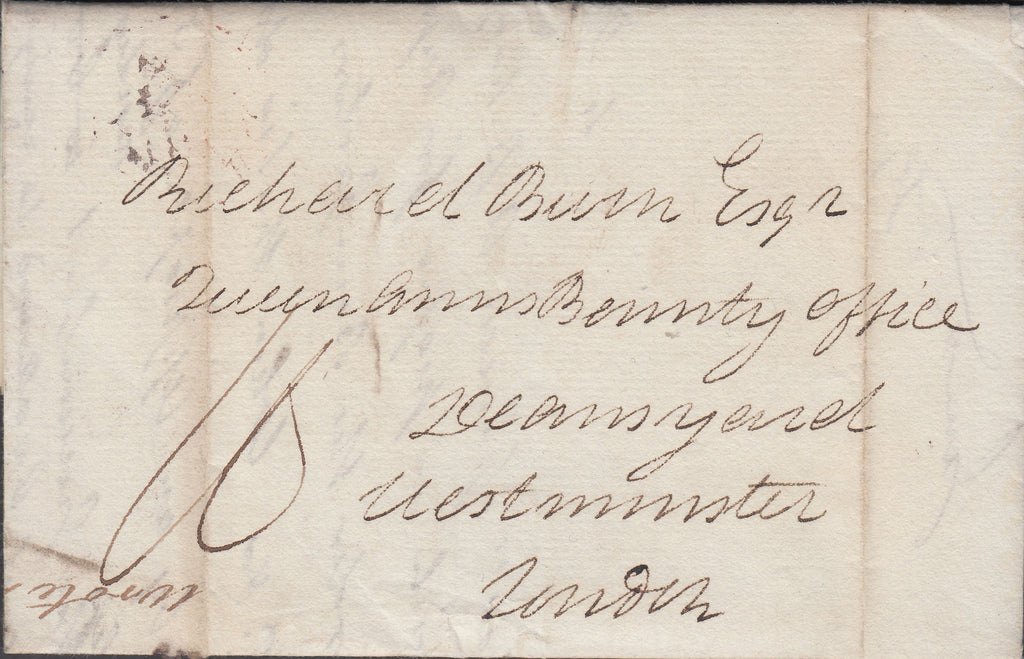 Richard Burn Esqr
Queen Anns Bounty office
Deansyard
Westminster
London